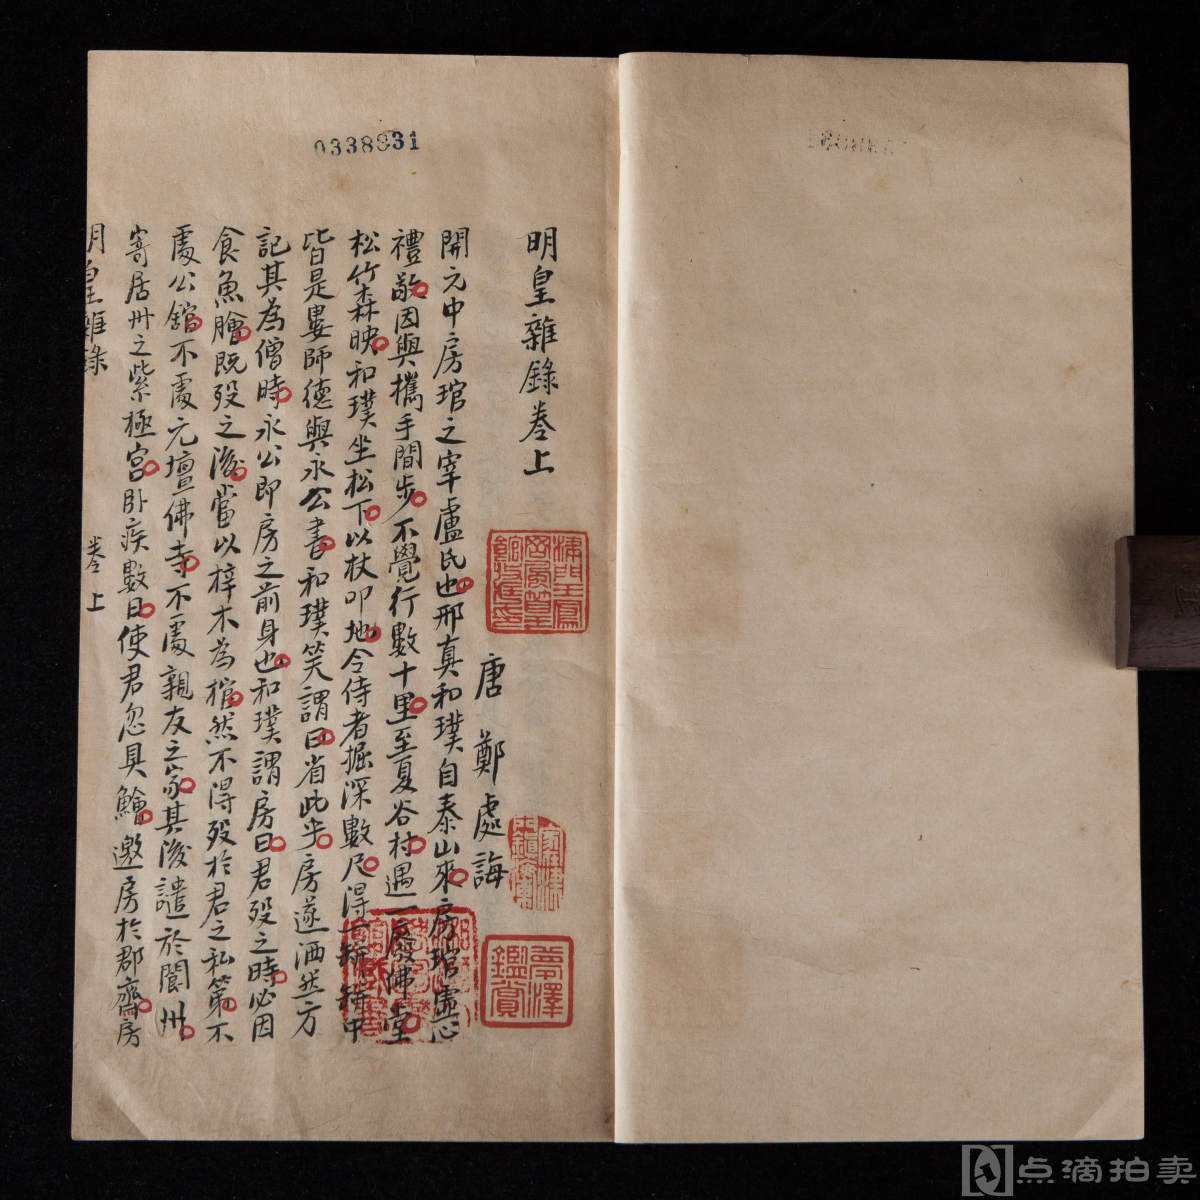 0338831
明皇雜錄卷上
唐 鄭處誨
開元中房琯之宰盧氏也邢真和璞自泰山來房琯虛心
禮敬因與攜手閒步不覺行數十里至夏谷村遇一廢佛堂
松竹森映和璞坐松下以杖叩地令侍者掘深數尺得一缾缾中
皆是婁師德與永公書和璞笑謂曰省此乎房遂洒然方
記其為僧時永公即房之前身也和璞謂房曰君歿之時必因
食魚膾既歿之後當以梓木為棺然不得歿於君之私第不
處公館不處元壇佛寺不處親友之家其後譴於閬州
寄居州之紫極宮臥疾數日使君忽具鱠邀房於郡齋房
明皇雜錄 卷上
夢澤鑑賞
点滴拍卖